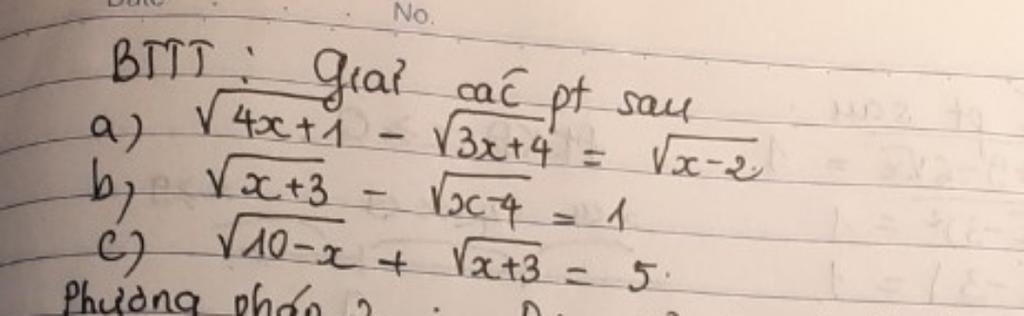 No.
BTTT : Giải các pt sau
a) √4x+1 - √3x+4 = √x-2
b) √x+3 - √x-4 = 1
c) √10-x + √x+3 = 5.
Phương pháp 2 :